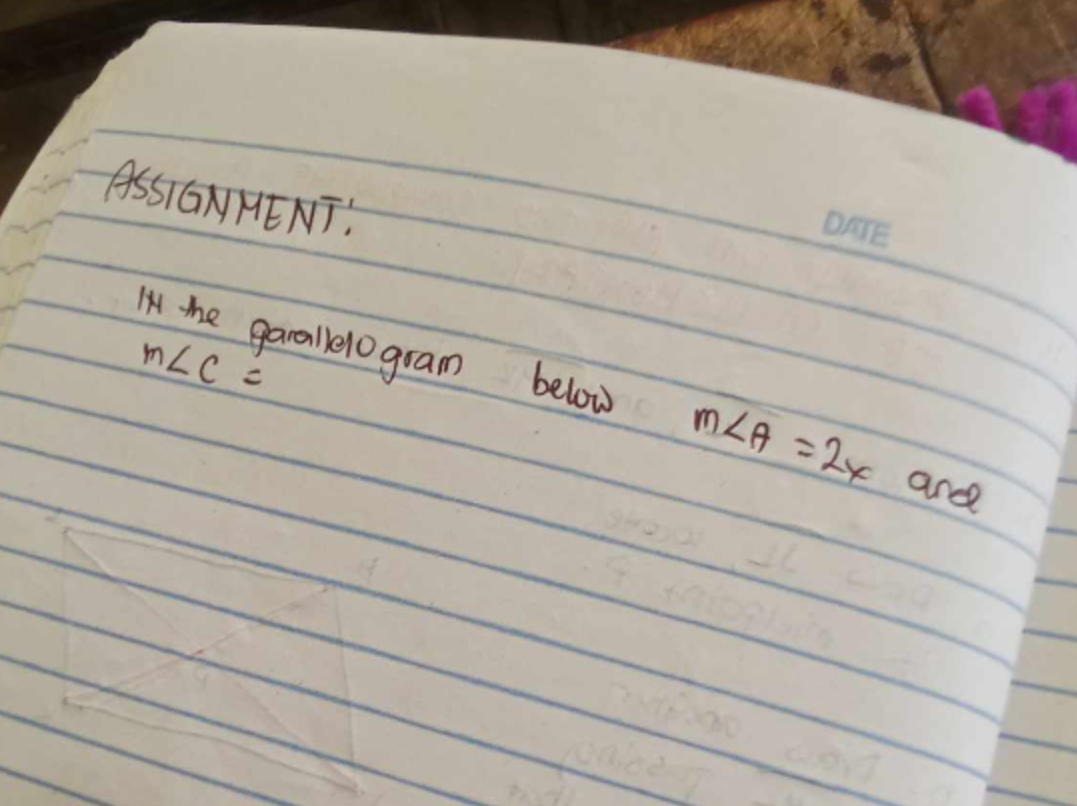 DATE
ASSIGNMENT:
IN the parallelogram below m∠A = 2x and
m∠C =